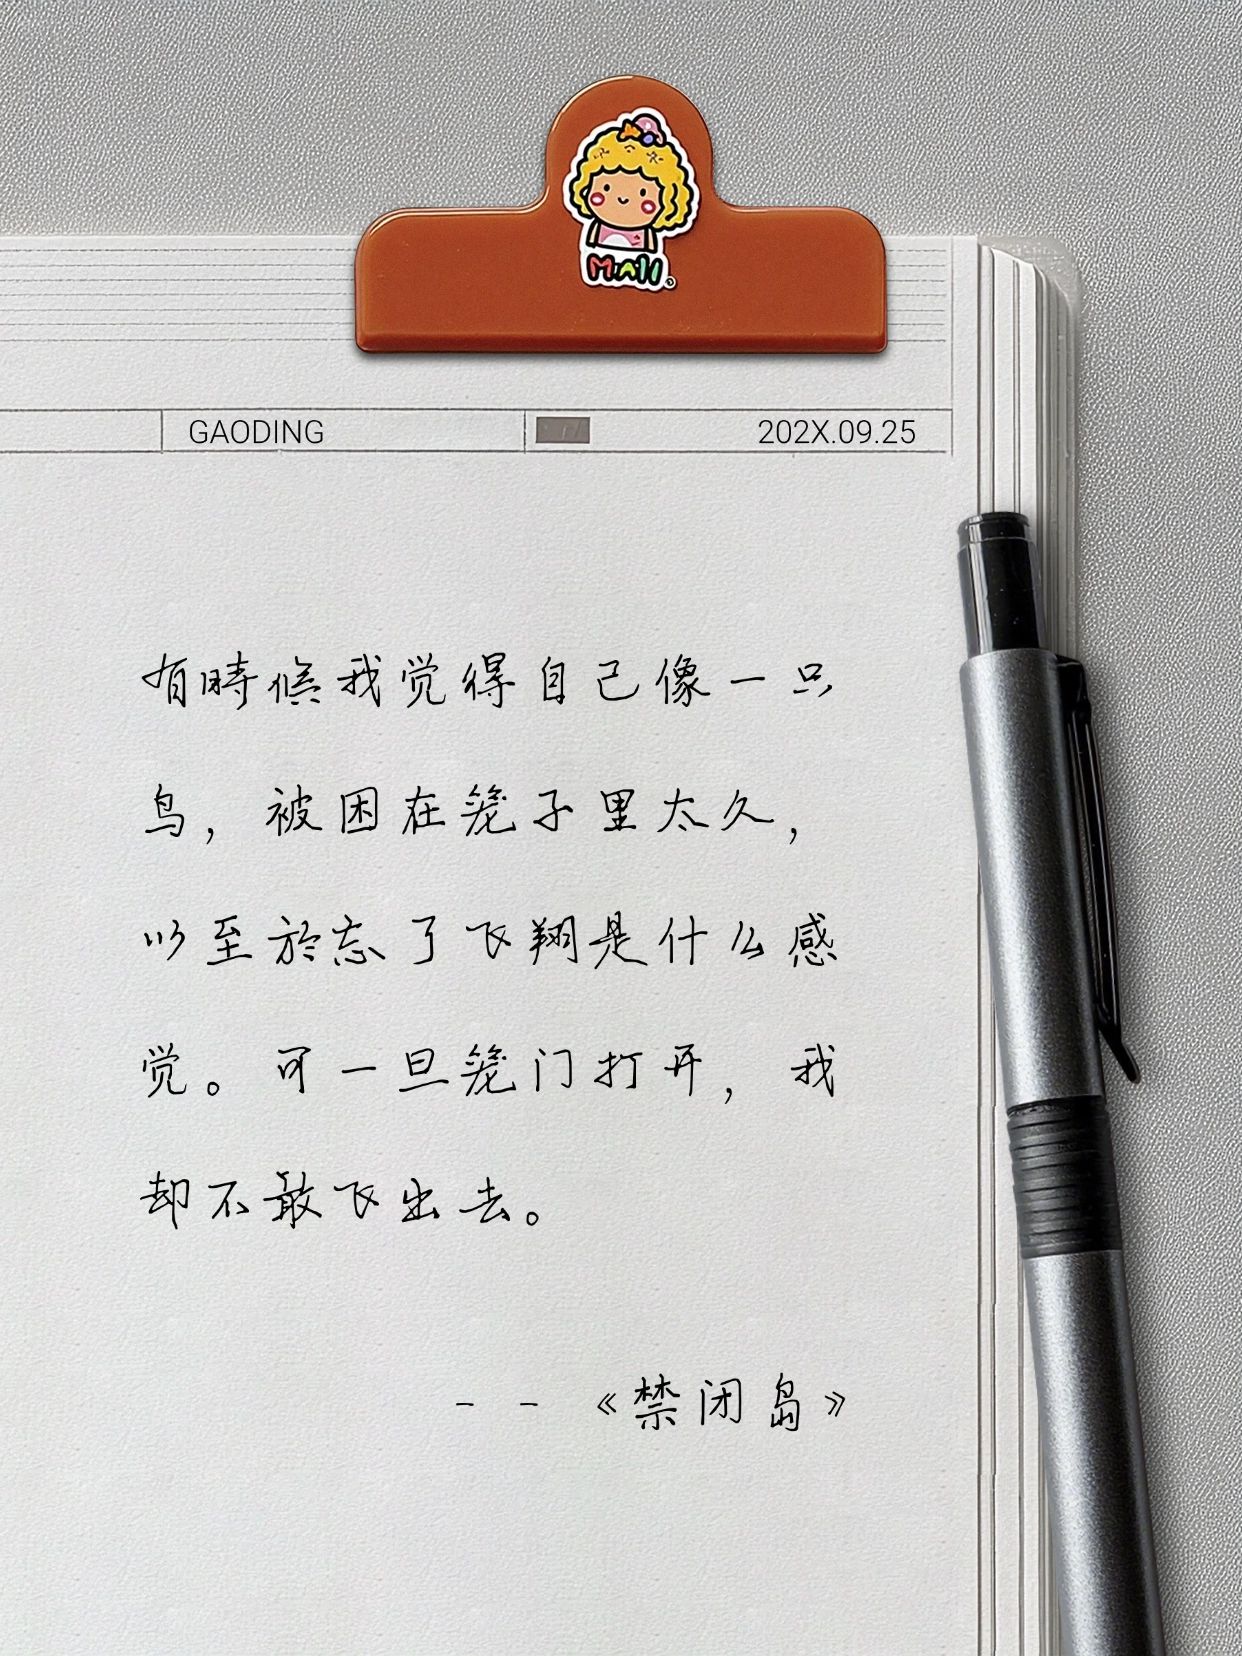 MAll
GAODING
202X.09.25
有時候我觉得自己像一只
鸟，被困在笼子里太久，
以至於忘了飞翔是什么感
觉。可一旦笼门打开，我
却不敢飞出去。
--《禁闭岛》